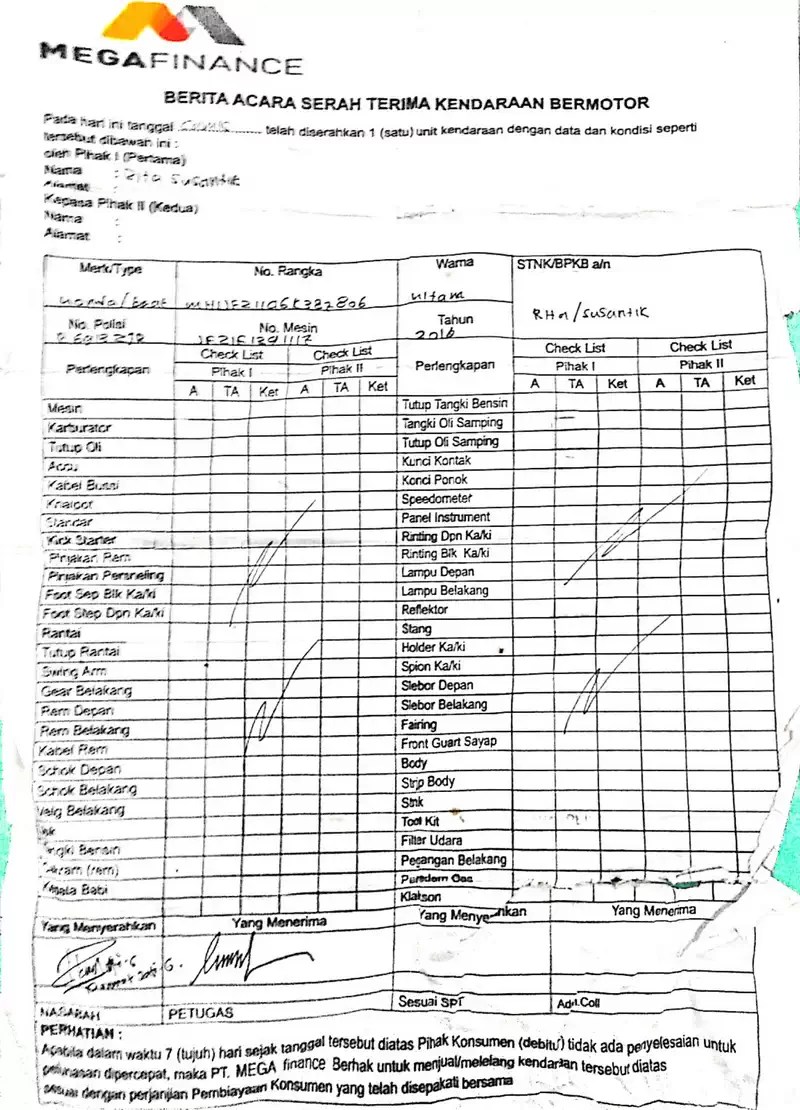 MEGAFINANCE
BERITA ACARA SERAH TERIMA KENDARAAN BERMOTOR
Pada hari ini tanggal ............ telah diserahkan 1 (satu) unit kendaraan dengan data dan kondisi seperti
tersebut dibawah ini :
oleh Pihak I (Pertama)
Nama : Rita Susantik
Alamat :
Kepada Pihak II (Kedua)
Nama :
Alamat :
Merk/Type No. Rangka Warna STNK/BPKB a/n
Honda/Beat Hitam
/Susantik
No. Polisi No. Mesin Tahun
2016
Perlengkapan Check List Check List Perlengkapan Check List Check List
Pihak I Pihak II Pihak I Pihak II
A TA Ket A TA Ket A TA Ket A TA Ket
Mesin Tutup Tangki Bensin
Karburator Tangki Oli Samping
Tutup Oli Tutup Oli Samping
Accu Kunci Kontak
Kabel Bussi Konci Ponok
Knalpot Speedometer
Standar Panel Instrument
Kick Starter Rinting Dpn Ka/ki
Pinjakan Rem Rinting Blk Ka/ki
Pinjakan Persneling Lampu Depan
Foot Sep Blk Ka/ki Lampu Belakang
Foot Step Dpn Ka/ki Reflektor
Rantai Stang
Tutup Rantai Holder Ka/ki
Swing Arm Spion Ka/ki
Gear Belakang Slebor Depan
Rem Depan Slebor Belakang
Rem Belakang Fairing
Kabel Rem Front Guart Sayap
Schok Depan Body
Schok Belakang Strip Body
Velg Belakang Stnk
Tool Kit
Bensin Filter Udara
(rem) Pegangan Belakang
Babi
Klakson
Yang Menyerahkan Yang Menerima Yang Menyerahkan Yang Menerima
NASABAH PETUGAS Sesuai SPT Adn.Coll
PERHATIAN :
Apabila dalam waktu 7 (tujuh) hari sejak tanggal tersebut diatas Pihak Konsumen (debitur) tidak ada penyelesaian untuk
pelunasan dipercepat, maka PT. MEGA finance Berhak untuk menjual/melelang kendaraan tersebut diatas
sesuai dengan perjanjian Pembiayaan Konsumen yang telah disepakati bersama